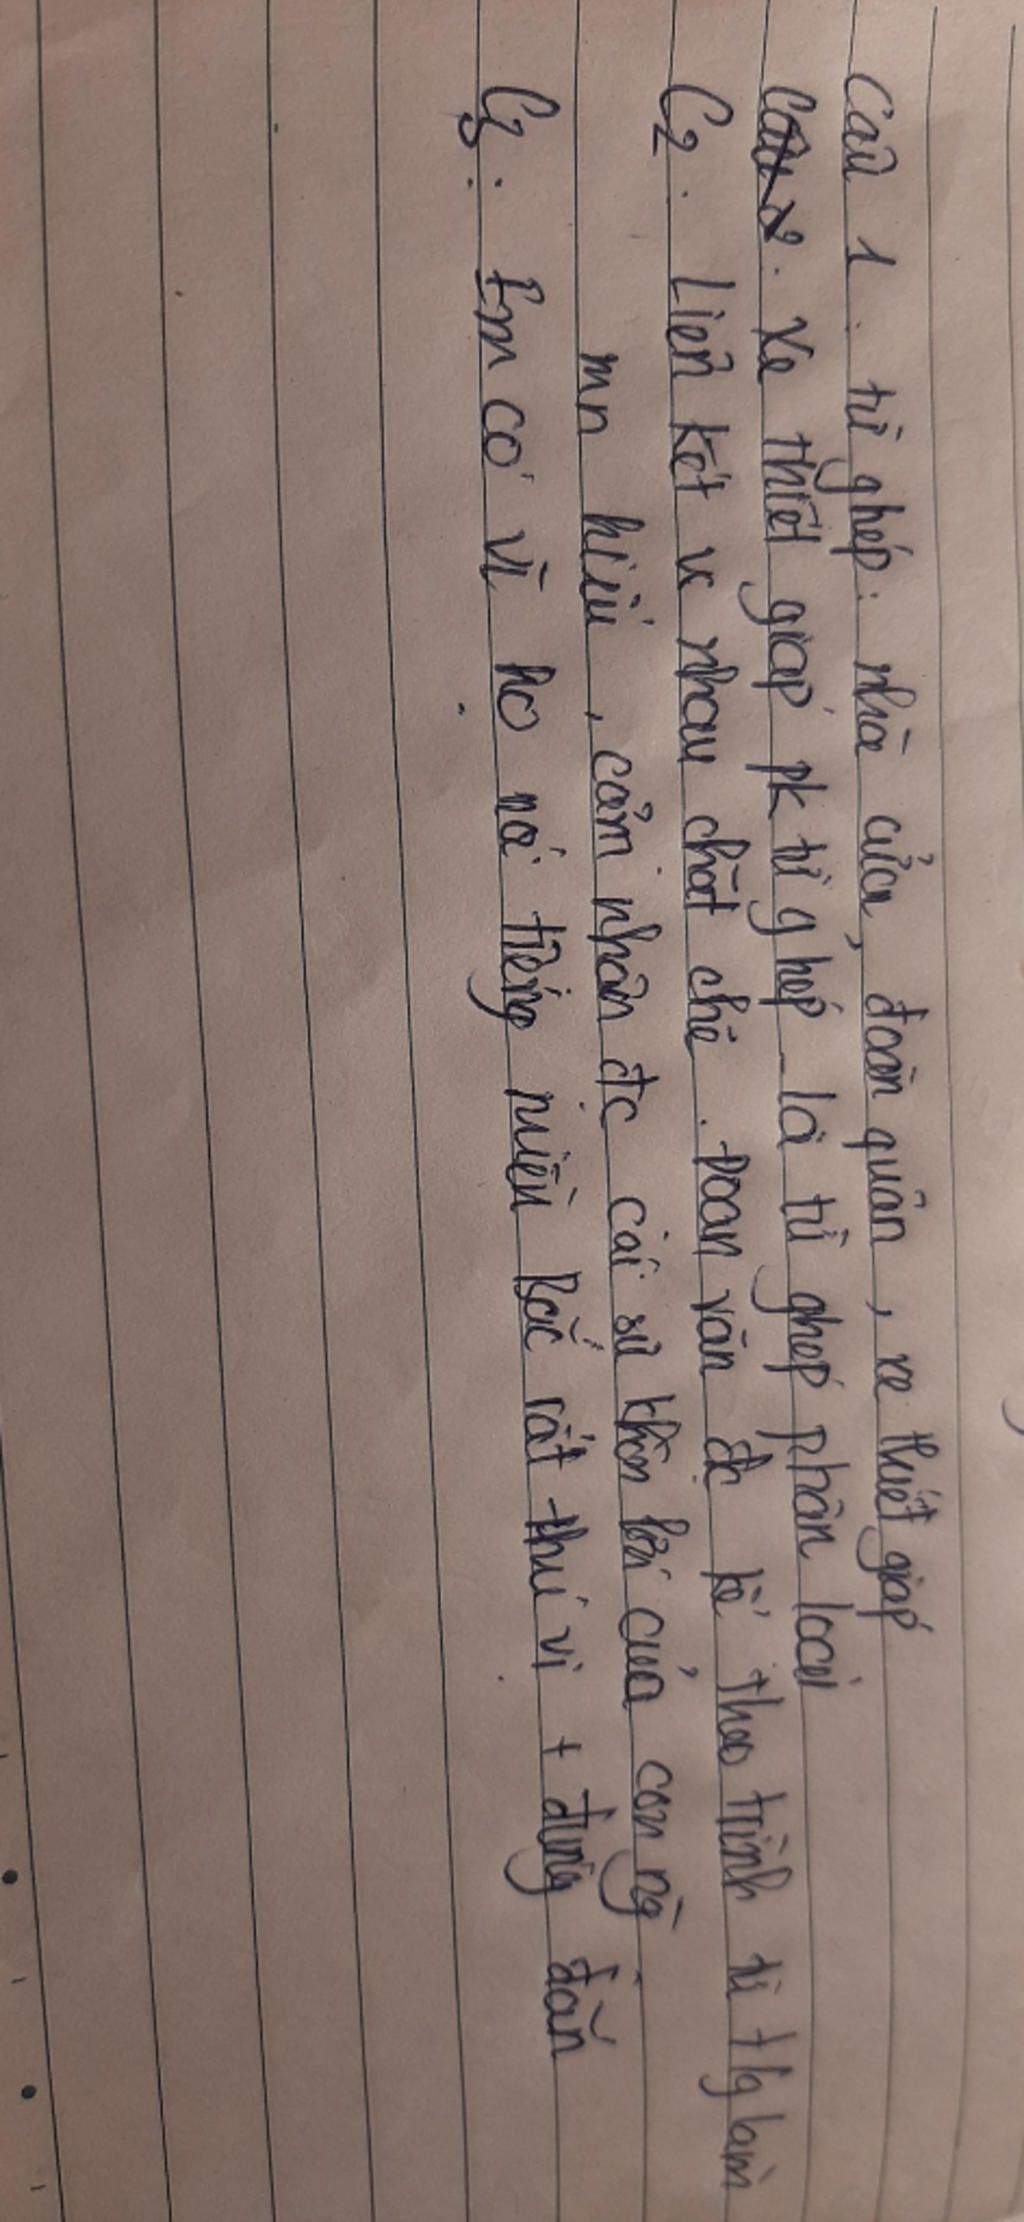 Câu 1. từ ghép: nhà cửa, đoàn quân, xe thiết giáp
Xe thiết giáp pk từ ghép là từ ghép phân loại
C2. Liên kết vs nhau chặt chẽ. Đoạn văn đc kể theo trình tự tg làm
mn hiểu, cảm nhận đc cái sự khôn lỏi của con ng.
C3: Em có vì họ nói tiếng miền Bắc rất thú vị + đúng đắn